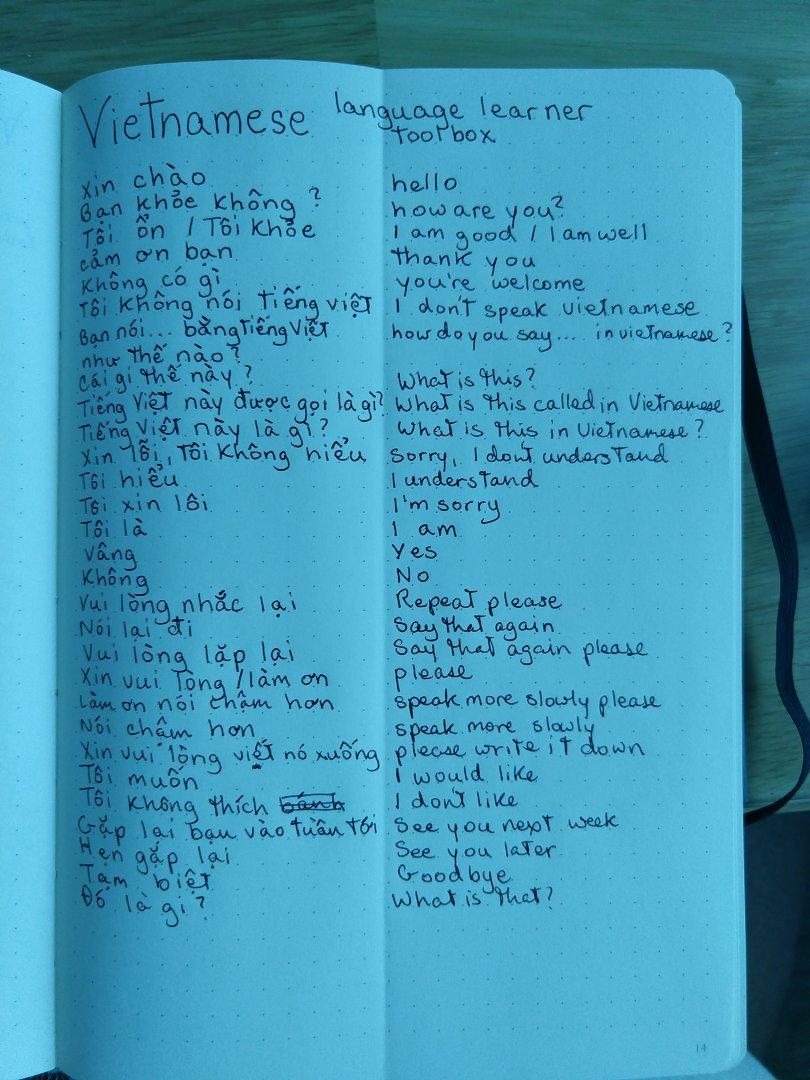 Vietnamese language learner
toolbox
Xin chào hello
Bạn khỏe không? how are you?
Tôi ổn / Tôi khỏe I am good / I am well
cảm ơn bạn thank you
Không có gì you're welcome
Tôi không nói tiếng việt I don't speak vietnamese
Bạn nói... bằng tiếng Việt how do you say.... in vietnamese?
như thế nào?
Cái gì thế này? What is this?
Tiếng Việt này được gọi là gì? What is this called in Vietnamese
Tiếng Việt này là gì? What is this in Vietnamese?
Xin lỗi, Tôi không hiểu Sorry, I dont understand
Tôi hiểu I understand
Tôi xin lôi I'm sorry
Tôi là I am
Vâng Yes
Không No
Vui lòng nhắc lại Repeat please
Nói lại đi Say that again
Vui lòng lặp lại Say that again please
Xin vui lòng / làm ơn please
Làm ơn nói chậm hơn speak more slowly please
Nói chậm hơn speak more slowly
Xin vui lòng viết nó xuống please write it down
Tôi muốn I would like
Tôi không thích bánh I don't like
Gặp lại bạn vào tuần tới See you next week
Hẹn gặp lại See you later
Tạm biệt Goodbye
Đó là gì? What is that?
14